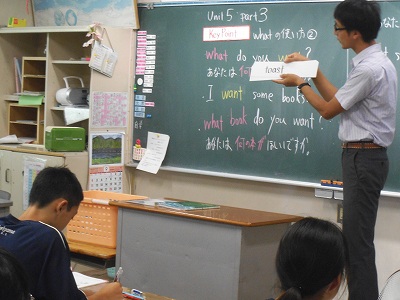 Unit 5 part 3
Key Point what の使い方②
what do you want?
あなたは何
I want some books.
what book do you want?
あなたは何の本がほしいですか。
toast